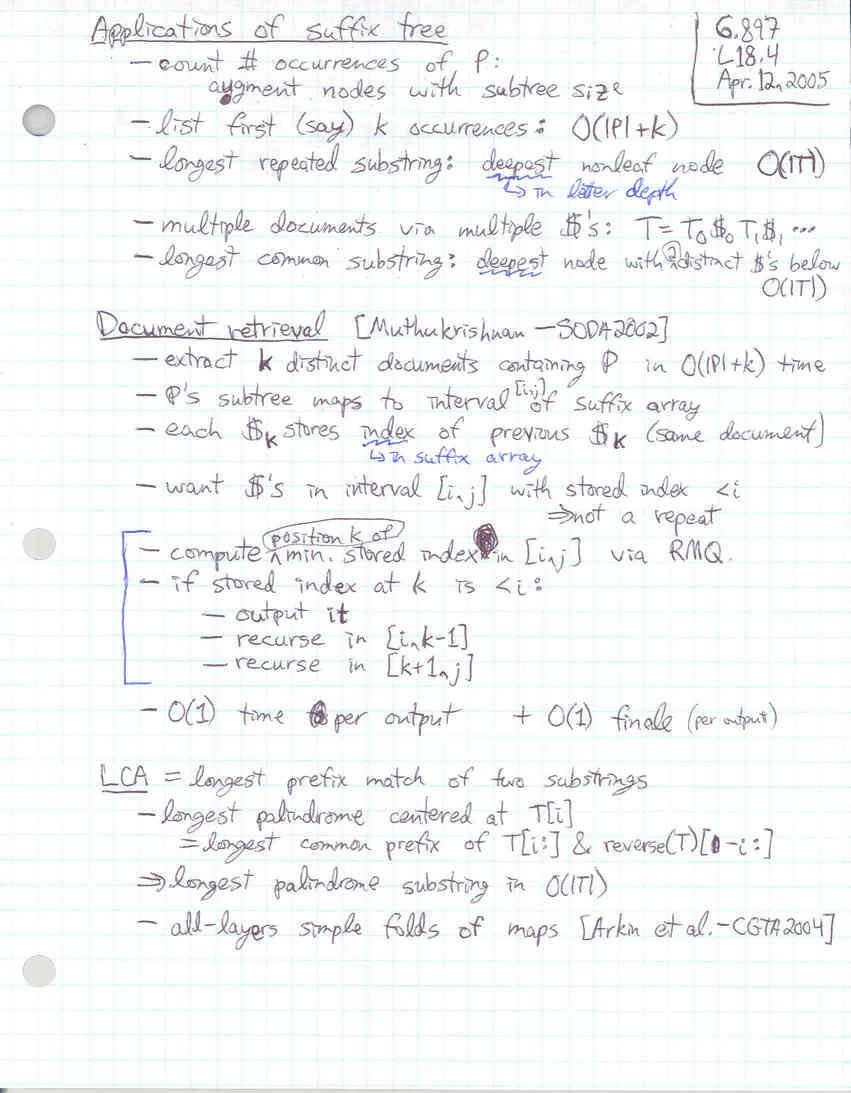 Applications of suffix tree
6.897
L18.4
Apr. 12, 2005
– count # occurrences of P:
augment nodes with subtree size
– list first (say) k occurrences: O(|P|+k)
– longest repeated substring: deepest nonleaf node O(|T|)
↳ in letter depth
– multiple documents via multiple $'s: T = T₀$₀T₁$₁ ...
– longest common substring: deepest node with 2 distinct $'s below
O(|T|)
Document retrieval [Muthukrishnan – SODA2002]
– extract k distinct documents containing P in O(|P|+k) time
– P's subtree maps to interval [i,j] of suffix array
– each $ₖ stores index of previous $ₖ (same document)
↳ in suffix array
– want $'s in interval [i,j] with stored index <i
⇒ not a repeat
– compute position k of min. stored index in [i,j] via RMQ.
– if stored index at k is <i:
– output it
– recurse in [i,k-1]
– recurse in [k+1,j]
– O(1) time per output + O(1) finale (per output)
LCA = longest prefix match of two substrings
– longest palindrome centered at T[i]
= longest common prefix of T[i:] & reverse(T)[-i:]
⇒ longest palindrome substring in O(|T|)
– all-layers simple folds of maps [Arkin et al. – CGTA2004]